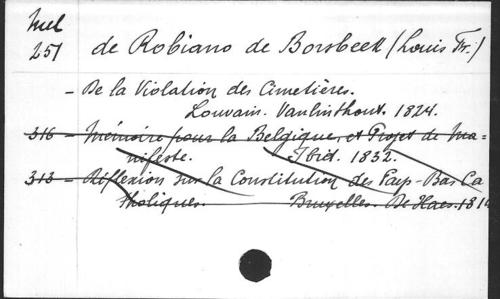 Mel
251 de Robiano de Borsbeek (Louis Fr.)
- De la Violation des Cimetières.
Louvain. Vanlinthout. 1824.
316 - Mémoire pour la Belgique, et Projet de Ma-
nifeste. Ibid. 1832.
313 - Réflexion sur la Constitution des Pays-Bas Ca
tholiques. Bruxelles. De Haes. 181